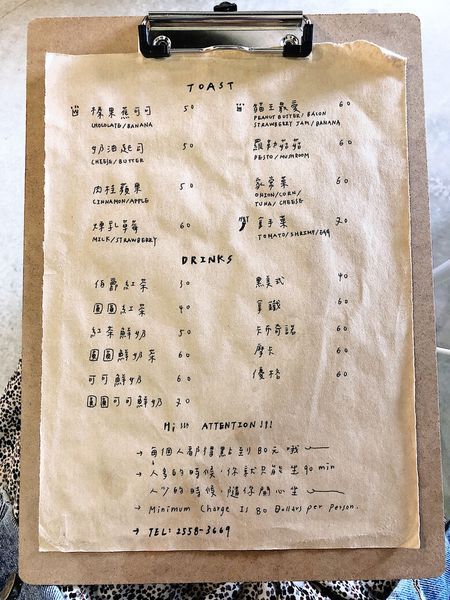 TOAST
榛果蕉可可 50
CHOCOLATE/BANANA
奶油起司 50
CHEESE/BUTTER
肉桂蘋果 50
CINNAMON/APPLE
煉乳草莓 60
MILK/STRAWBERRY
貓王最愛 60
PEANUT BUTTER/BACON
STRAWBERRY JAM/BANANA
羅勒菇菇 60
PESTO/MUSHROOM
家常菜 60
ONION/CORN/
TUNA/CHEESE
HOT 拿手菜 70
TOMATO/SHRIMP/EGG
DRINKS
伯爵紅茶 30
圓圓紅茶 40
紅茶鮮奶 50
圓圓鮮奶茶 60
可可鮮奶 60
圓圓可可鮮奶 70
黑美式 40
拿鐵 60
卡布奇諾 60
摩卡 60
優格 60
Hi !!! ATTENTION!!!
→ 每個人都得點到80元哦
→ 人多的時候,你就只能坐90min
人少的時候,隨你開心坐
→ Minimum Charge Is 80 Dollars per person.
→ TEL: 2558-3669